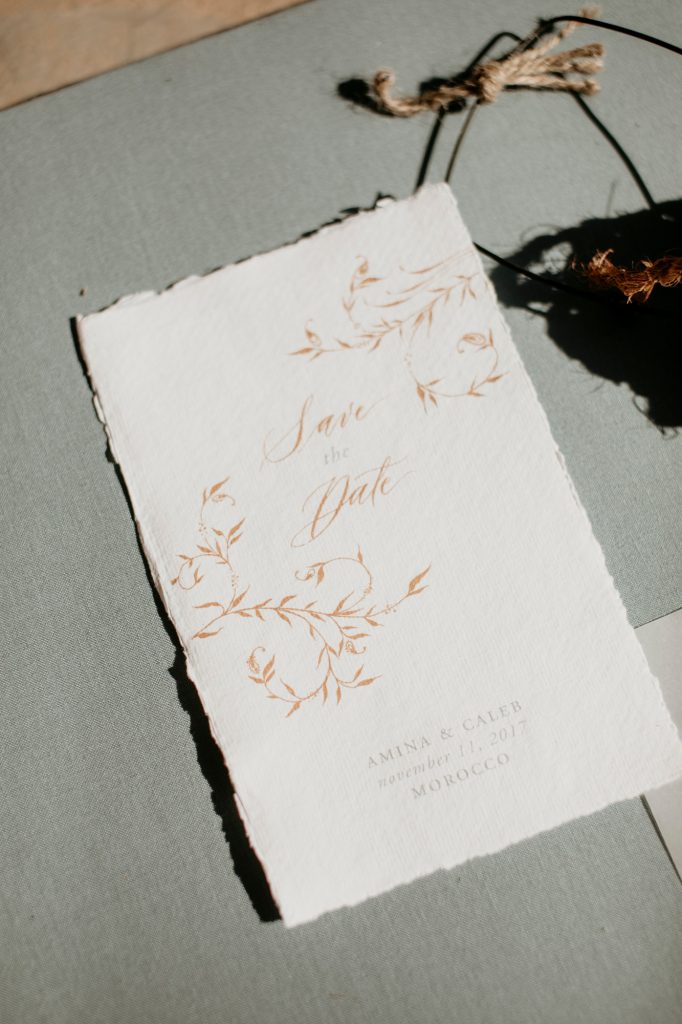 Save
the
Date
AMINA & CALEB
november 11, 2017
MOROCCO